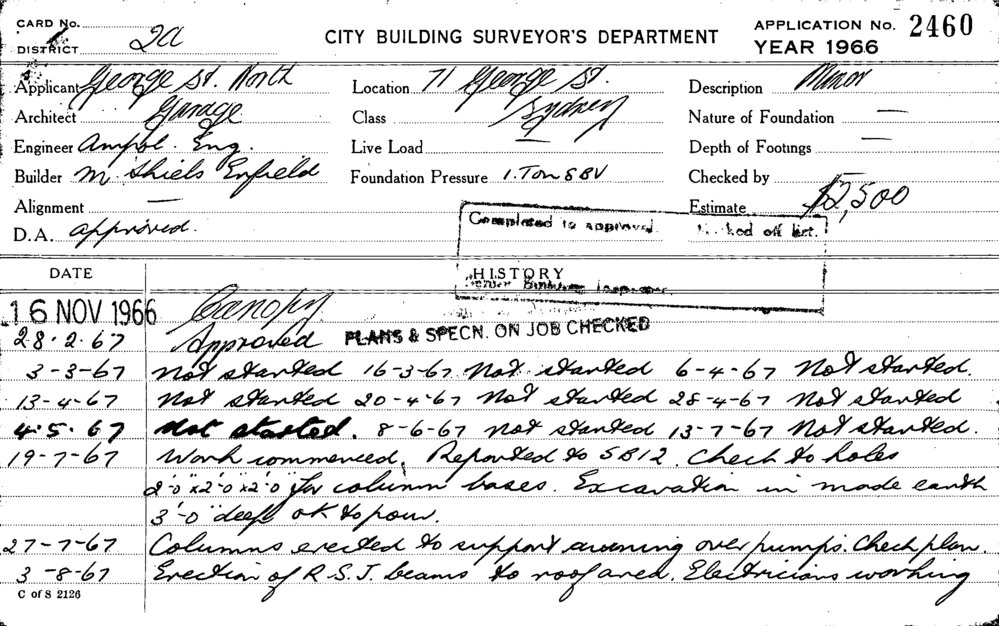 CARD No.
DISTRICT 2a
CITY BUILDING SURVEYOR'S DEPARTMENT
APPLICATION No. 2460
YEAR 1966
Applicant George St. North
Location 71 George St.
Description Minor
Architect Garage
Class Sydney
Nature of Foundation —
Engineer Ampol. Eng.
Live Load —
Depth of Footings —
Builder M Shiels Enfield
Foundation Pressure 1. Ton SBV
Checked by —
Alignment —
Estimate $2,500
D.A. approved.
Completed as approved. off list.
DATE
HISTORY
Building Inspector.
16 NOV 1966 Canopy
28.2.67 Approved PLANS & SPECN. ON JOB CHECKED
3-3-67 Not started 16-3-67 Not started 6-4-67 Not started.
13-4-67 Not started 20-4-67 Not started 28-4-67 Not started
4.5.67 Not started. 8-6-67 Not started 13-7-67 Not started.
19-7-67 Work commenced. Reported to SB12. Check to holes
2'-0"x2'-0"x2'-0" for column bases. Excavation in made earth
3'-0" deep ok to pour.
27-7-67 Columns erected to support awning over pumps. Check plan.
3-8-67 Erection of R.S.J. beams to roof area. Electricians working
C of S 2126